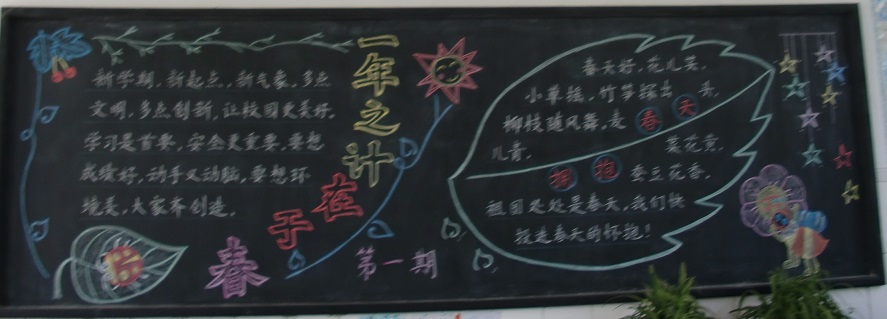 新学期，新起点，新气象，多点
文明，多点创新，让校园更美好。
学习是首要，安全更重要，要想
成绩好，动手又动脑，要想环
境美，大家齐创造。
一年之计
在于春
第一期
春天好，花儿笑，
小草摇，竹笋探出头，
柳枝随风舞，麦
儿青，菜花黄，
蚕豆花香。
祖国处处是春天，我们快
投进春天的怀抱！
春天
拥抱